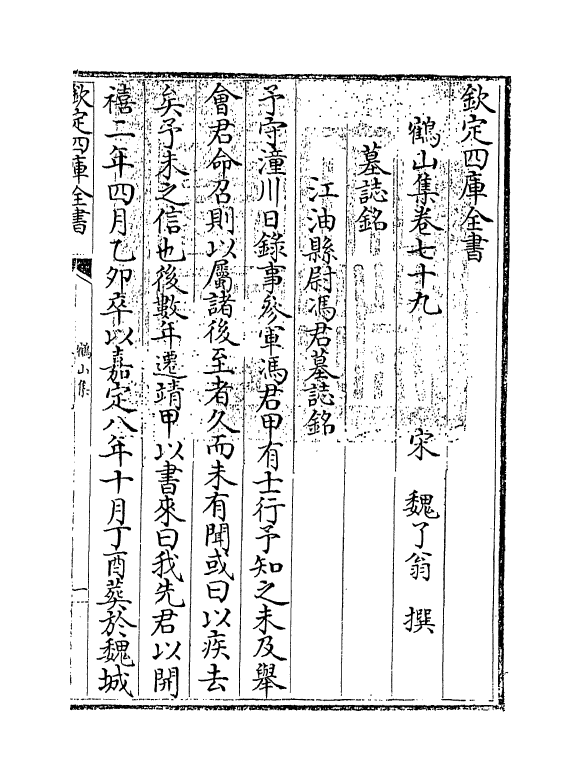 欽定四庫全書
鶴山集卷七十九　宋　魏了翁　撰
墓誌銘
江油縣尉馮君墓誌銘
予守潼川日錄事參軍馮君甲有士行予知之未及舉
會君命召則以屬諸後至者久而未有聞或曰以疾去
矣予未之信也後數年遷靖甲以書來曰我先君以開
禧二年四月乙卯卒以嘉定八年十月丁酉葬於魏城
欽定四庫全書
鶴山集
一